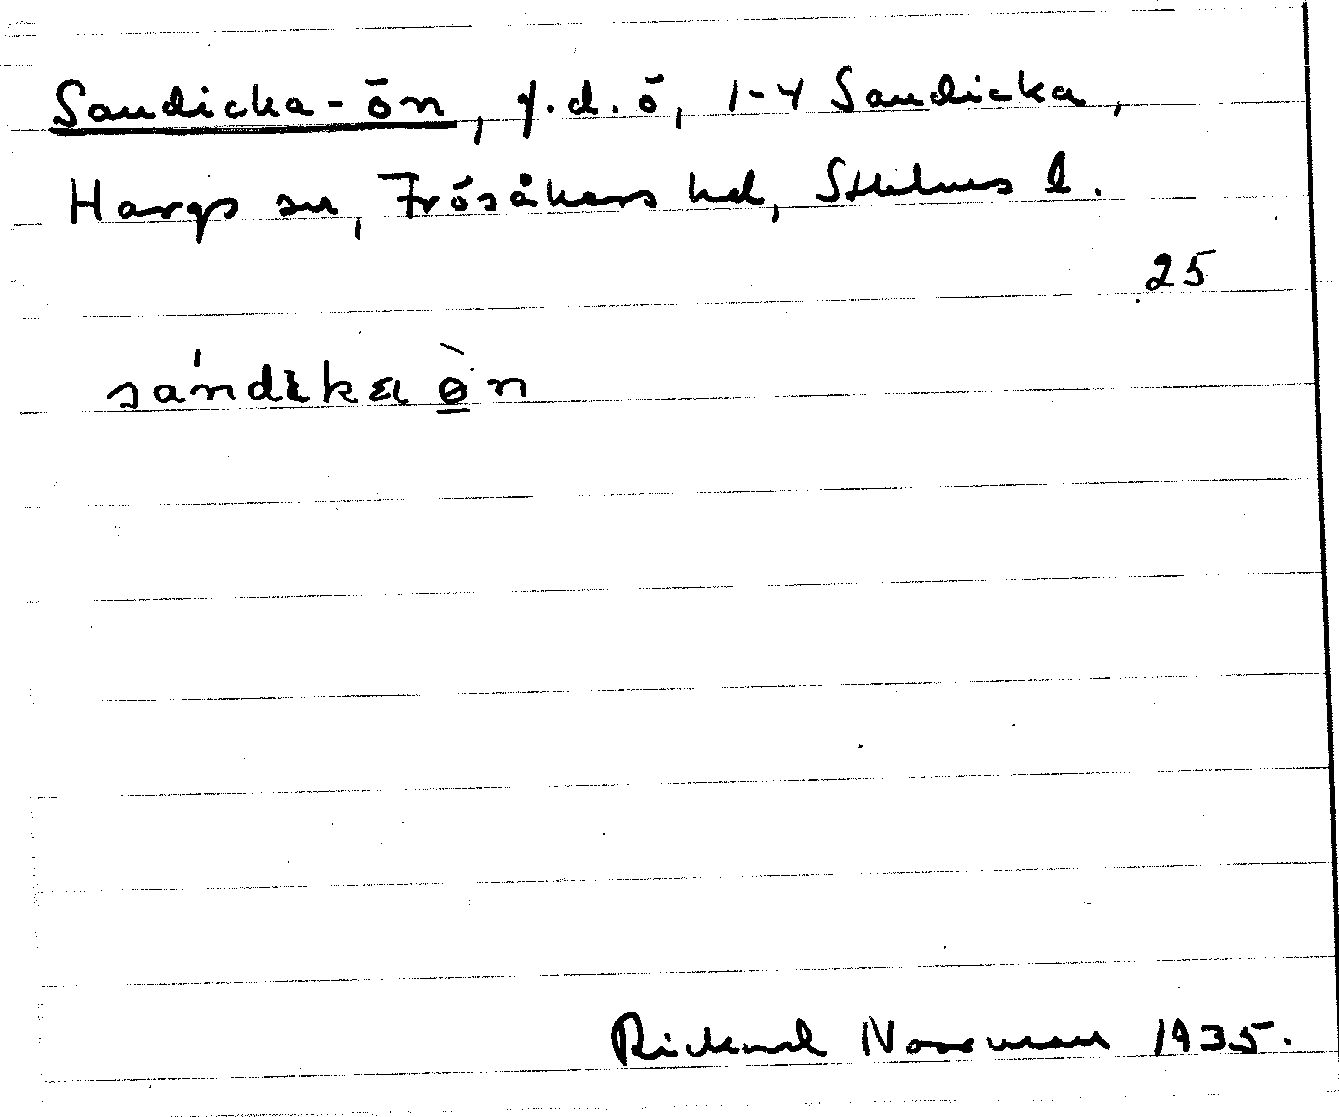 Sandicka-ön, f.d. ö, 1-4 Sandicka,
Hargs sn, Frösåkers hd, Sthlms l.
25
sándɩka ø̲̀n
Rickard Norrman 1935.